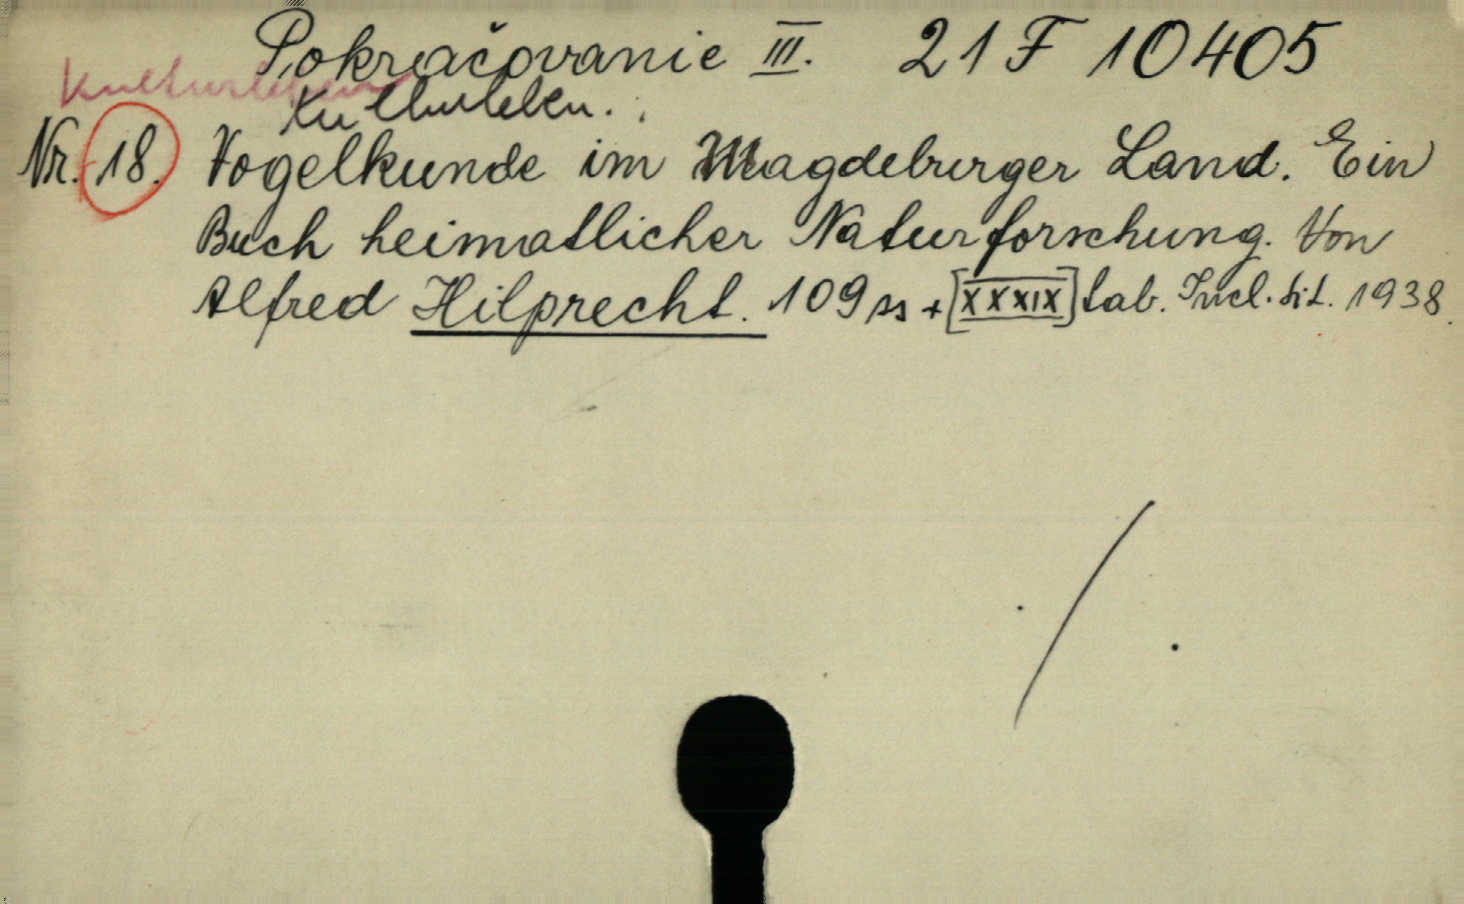 Pokračovanie III. 21 F 10405
Kulturleben
Kulturleben.
Nr. 18. Vogelkunde im Magdeburger Land. Ein
Buch heimatlicher Naturforschung. Von
Alfred Hilprecht. 109 ss + [XXXIX] tab. Incl. tit. 1938.